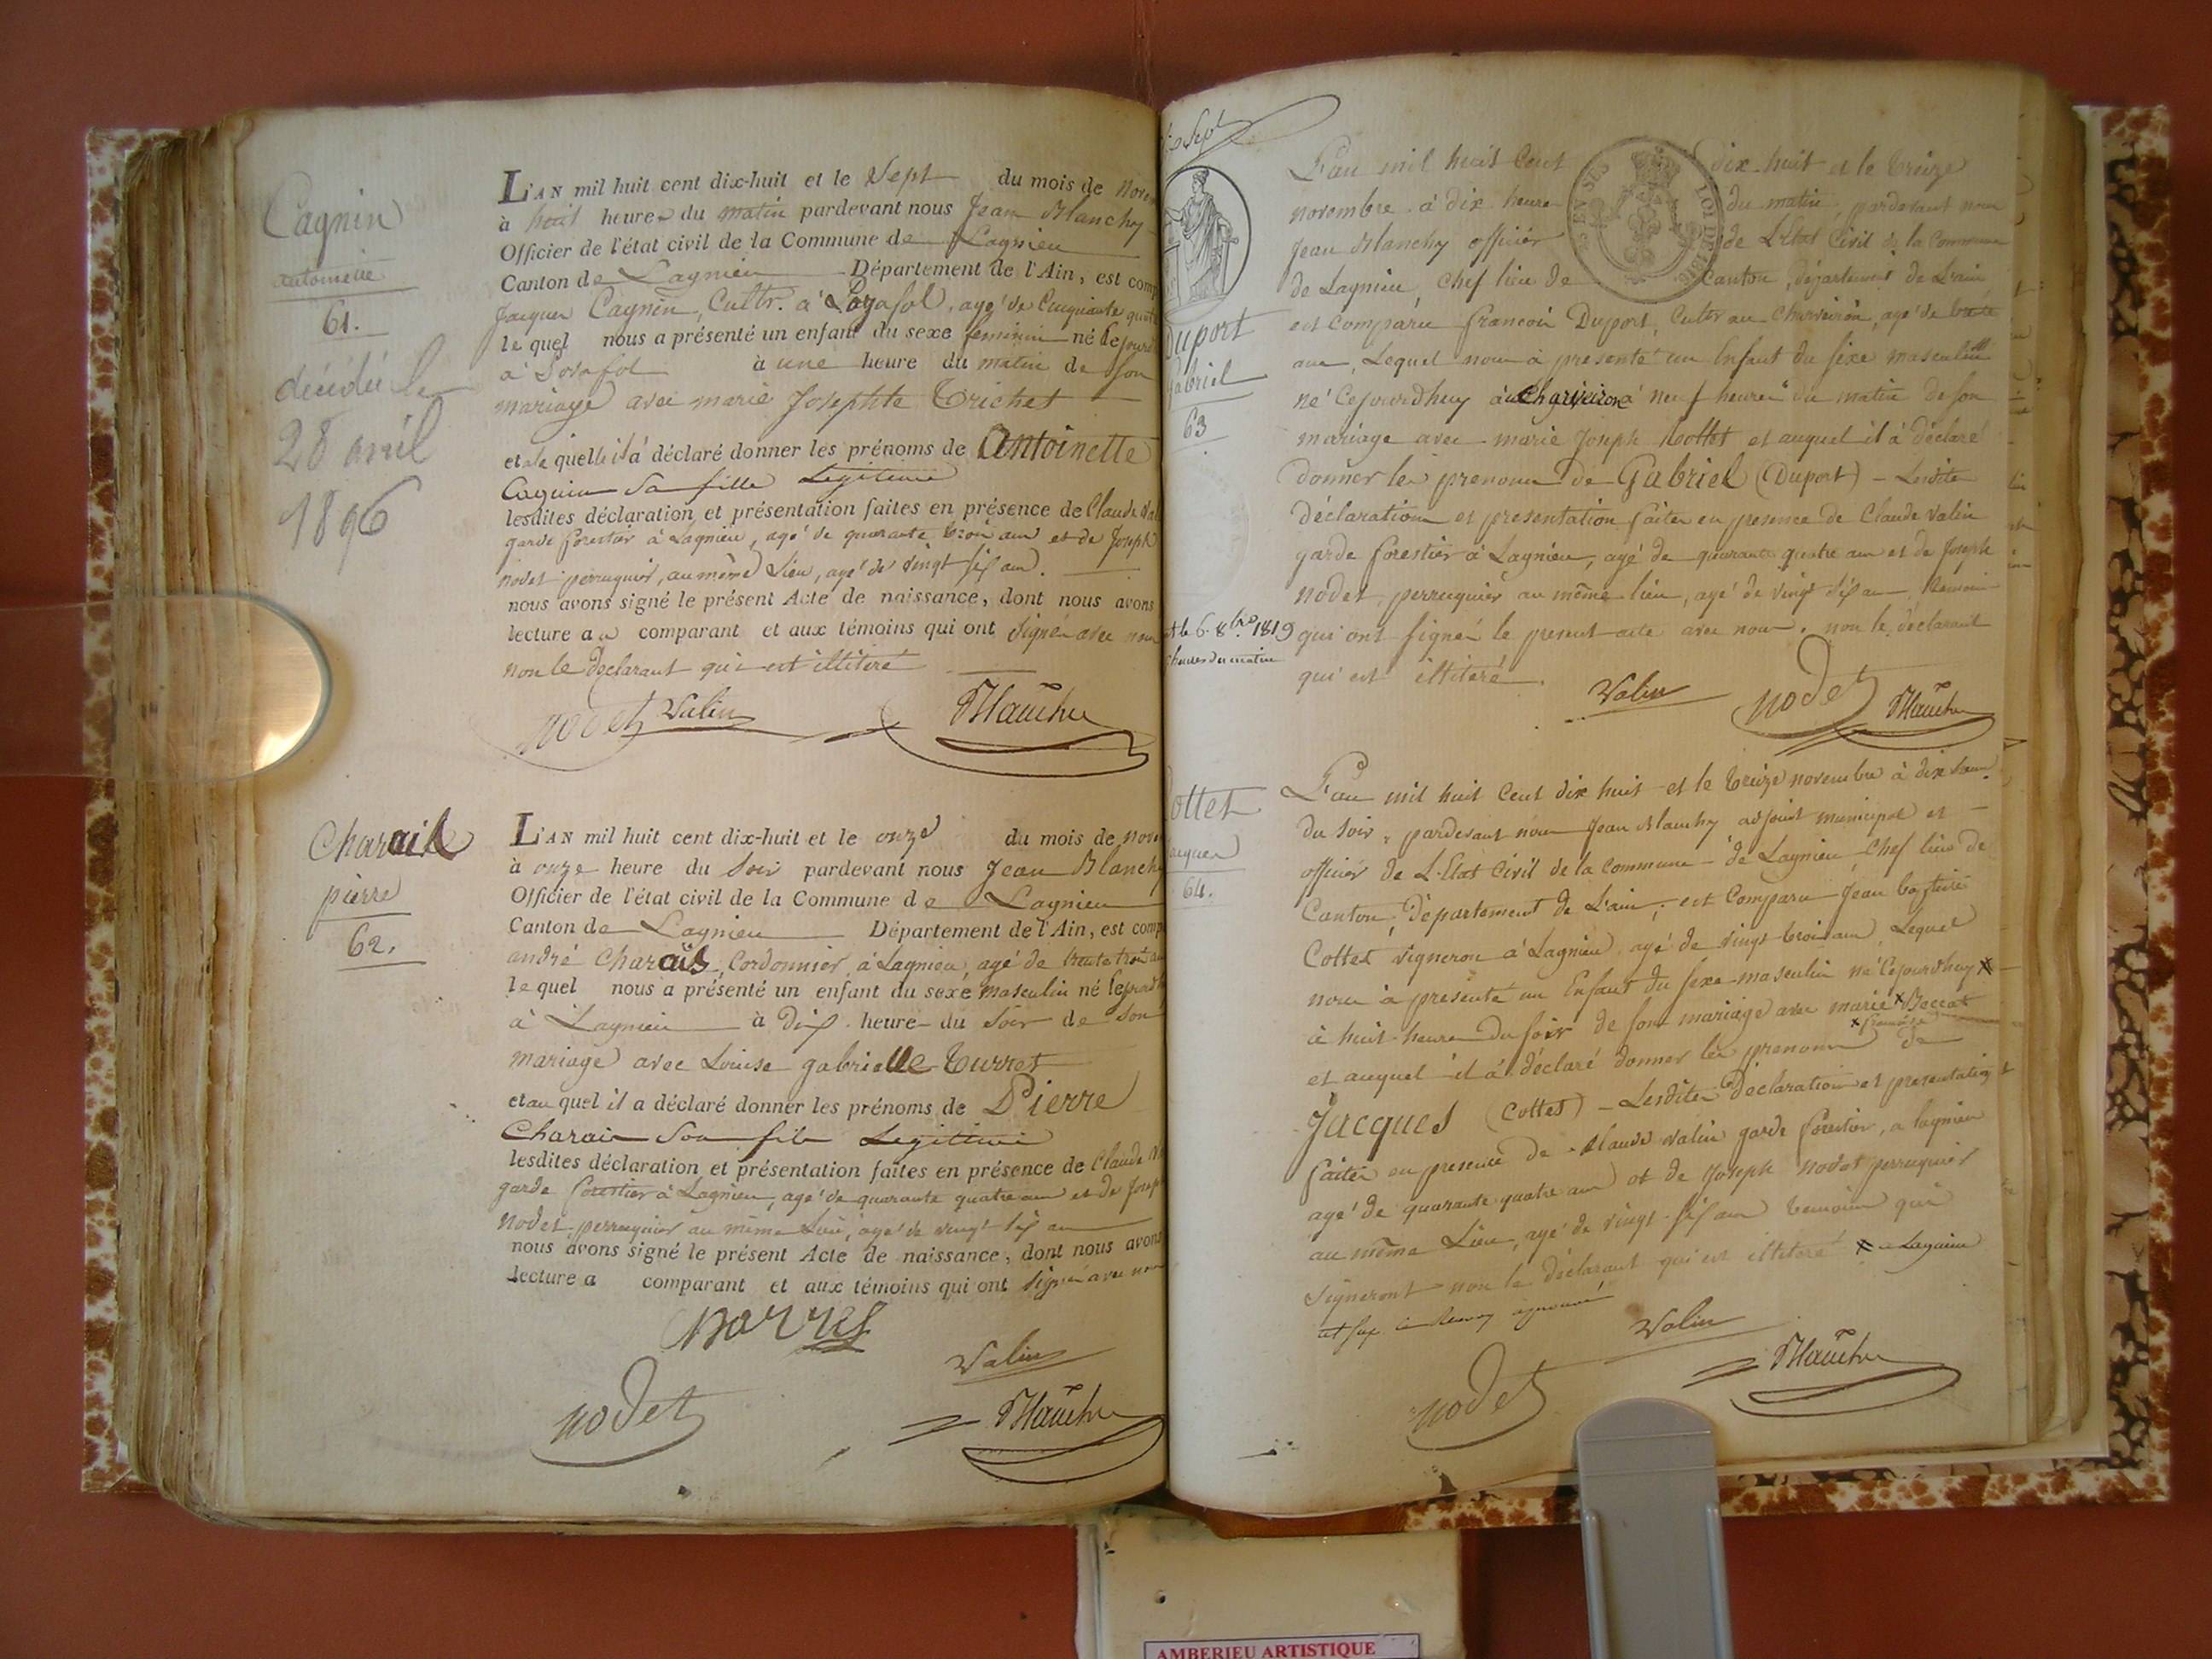 Cagnin
antoinette
61.
décédée le
28 avril
1896
L'AN mil huit cent dix-huit et le Sept du mois de Nove
à huit heures du matin pardevant nous Jean Blanchy
Officier de l'état civil de la Commune de Lagnieu
Canton de Lagnieu Département de l'Ain, est comp
Jacques Cagnin, Cultr. à , agé de Cinquante quatre
le quel nous a présenté un enfant du sexe feminin né Cejourd
à à une heure du matin de Son
mariage avec marie Josephte Trichet
et a la quelle il a déclaré donner les prénoms de Antoinette
Cagnin Sa fille Legitime
lesdites déclaration et présentation faites en présence de Claude Val
garde forestier à Lagnieu, agé de quarante trois ans et de Joseph
nodet perruquier, au même Lieu, agé de vingt six ans.
nous avons signé le présent Acte de naissance, dont nous avons
lecture au comparant et aux témoins qui ont signé avec nous
non le Declarant qui est illitéré
nodet Valin Blanchy
Charair
pierre
62.
L'AN mil huit cent dix-huit et le onze du mois de nove
à onze heure du Soir pardevant nous Jean Blanchy
Officier de l'état civil de la Commune de Lagnieu
Canton de Lagnieu Département de l'Ain, est comp
andré Charais, Cordonnier à Lagnieu, agé de trente trois an
le quel nous a présenté un enfant du sexe masculin né Cejourdh
à Lagnieu à Dix heure du Soir de Son
mariage avec Louise gabrielle Turret
et au quel il a déclaré donner les prénoms de Pierre
Charais Son fils Legitime
lesdites déclaration et présentation faites en présence de Claude V
garde forestier à Lagnieu, agé de quarante quatre ans et de Joseph
nodet, perruquier au même Lieu, agé de vingt six ans
nous avons signé le présent Acte de naissance, dont nous avons
lecture a comparant et aux témoins qui ont signé avec nous
Valin
nodet Blanchy
Duport
Gabriel
63
et le 6. 8bre 1819
heures du matin
L'an mil huit Cent dix-huit et le treize
novembre à dix heures du matin, pardevant nous
Jean Blanchy officier de L'Etat Civil de la Commune
de Lagnieu, Chef lieu de Canton, département de L'ain
LOI DE 1816
est comparu françois Duport, Cultr au Charveiron, agé de trente
ans, Lequel nous à présenté un Enfant du sexe masculin
né Cejourdhuy à neuf heures du matin de son
mariage avec marie Joseph Cottet et auquel il à déclaré
donner les prenoms de Gabriel (Duport) - Lesdites
déclaration et présentation faites en presence de Claude Valin
garde forestier à Lagnieu, agé de quarante quatre ans et de Joseph
nodet, perruquier au même lieu, agé de vingt six ans, témoins
qui ont signé le present acte avec nous. non le déclarant
qui est illitéré.
Valin nodet Blanchy
Cottet
Jacques
64.
L'an mil huit Cent dix huit et le treize novembre à dix heures
du soir, pardevant nous Jean Blanchy adjoint municipal et
officier de L'Etat Civil de la Commune de Lagnieu Chef lieu de
Canton, Département de L'ain, est Comparu Jean baptiste
Cottet vigneron à Lagnieu, agé de vingt trois ans, Lequel
nous à présenté un Enfant du sexe masculin né Cejourdhuy x
à huit heures du soir de son mariage avec marie x Beccat
x françoise
et auquel il à déclaré donner les prenoms de
Jacques (Cottet) - Lesdites Declaration et presentation
faites en presence de Claude Valin garde forestier, a lagnieu
agé de quarante quatre ans et de Joseph nodet perruquier
au même Lieu, agé de vingt six ans temoins qui
signeront non le déclarant qui est illitéré x a Lagnieu
Valin
nodet Blanchy
AMBERIEU ARTISTIQUE